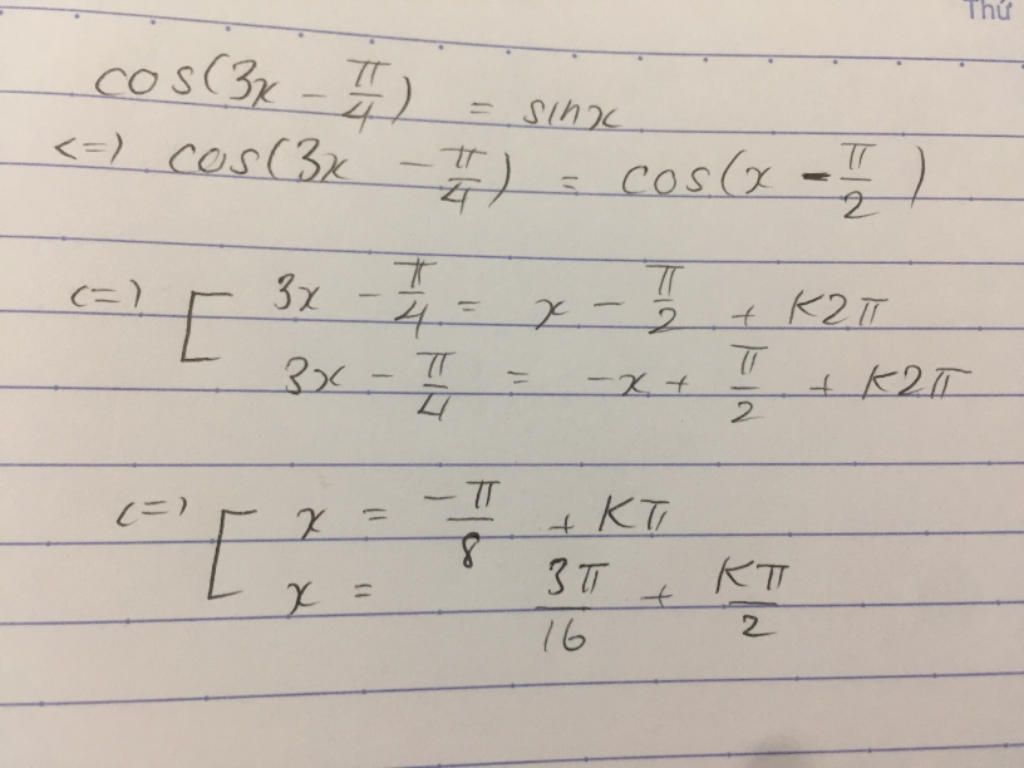 Thứ
cos(3x - π/4) = sinx
<=> cos(3x - π/4) = cos(x - π/2)
<=> [ 3x - π/4 = x - π/2 + K2π
3x - π/4 = -x + π/2 + K2π
<=> [ x = -π/8 + Kπ
x = 3π/16 + Kπ/2